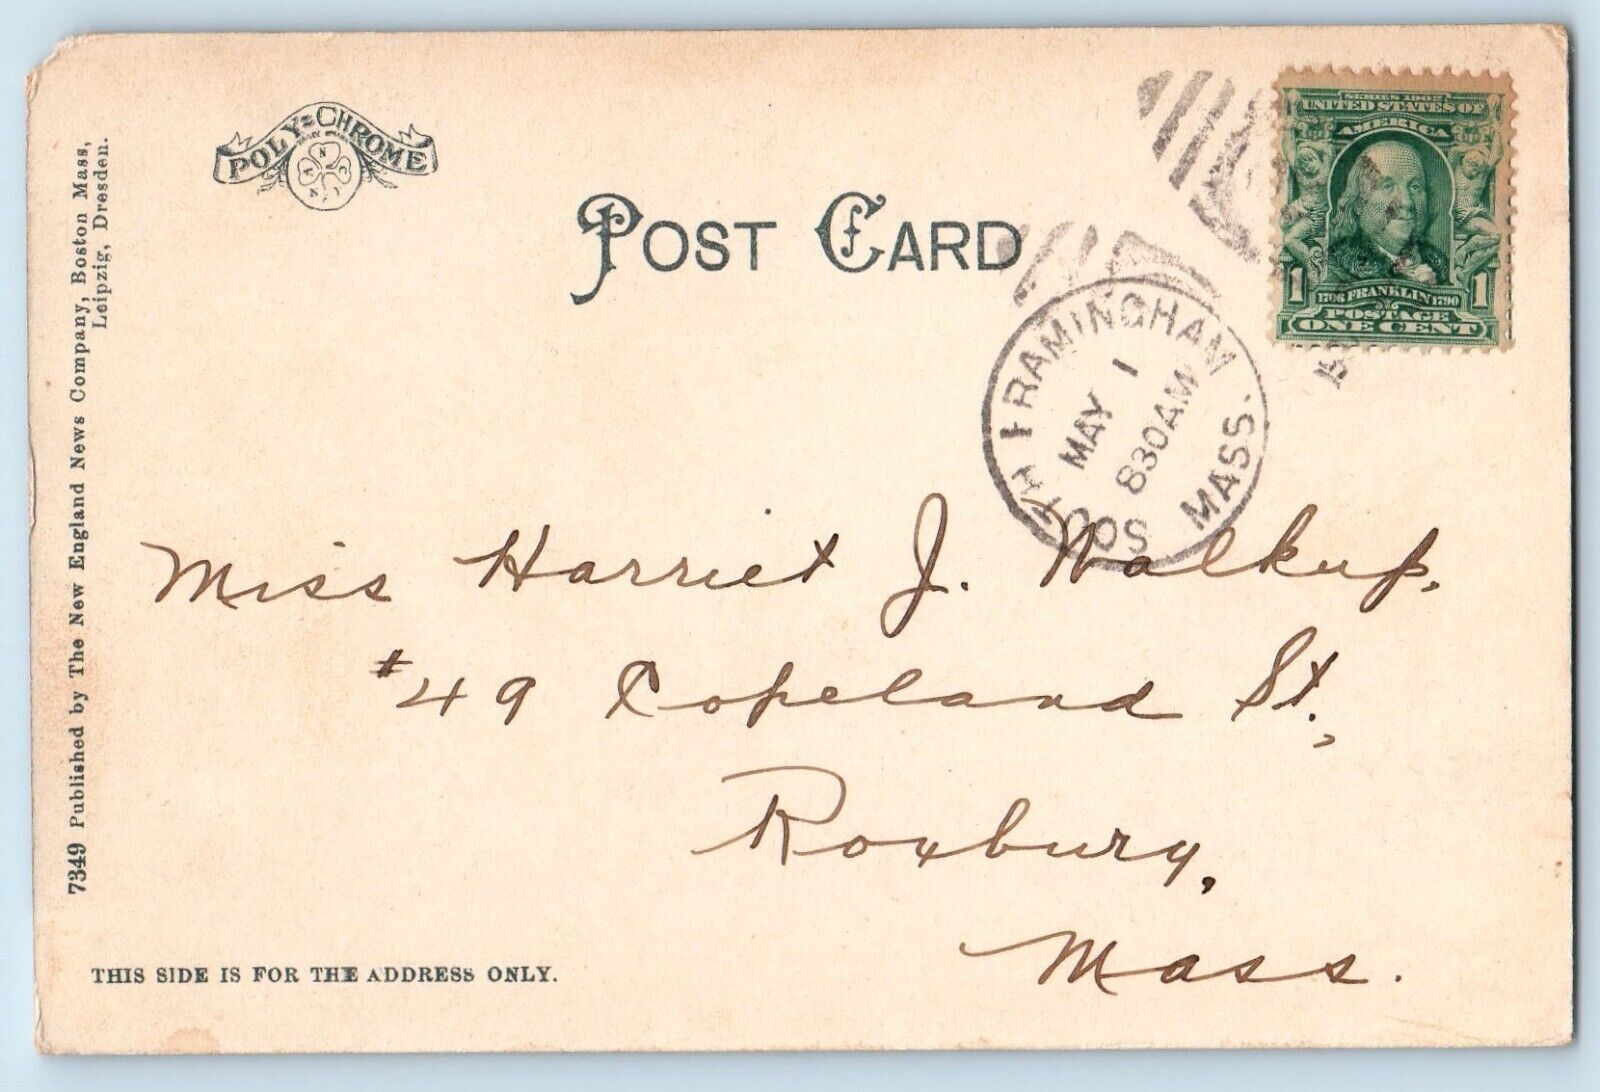 POLY-CHROME
POST CARD
SERIES 1902
UNITED STATES OF
AMERICA
1 1
1706 FRANKLIN 1790
POSTAGE
ONE CENT
SOUTH FRAMINGHAM MASS.
MAY 1
830AM
Miss Harriet J. Walkup,
#49 Copeland St.,
Roxbury,
Mass.
THIS SIDE IS FOR THE ADDRESS ONLY.
7349 Published by The New England News Company, Boston Mass,
Leipzig, Dresden.